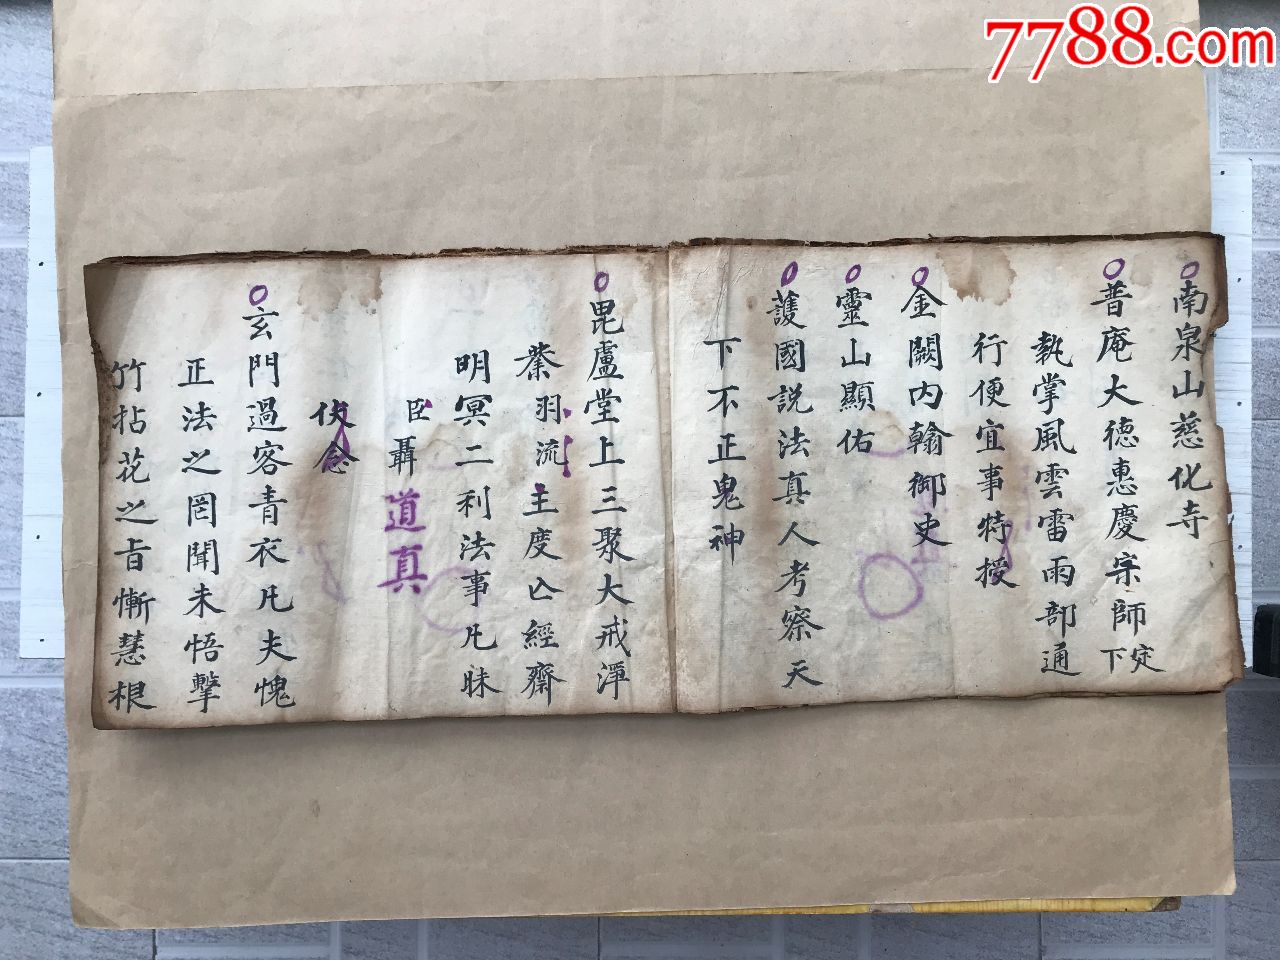 南泉山慈化寺
普庵大徳惠慶宗師下㝎
執掌風雲雷雨部通
行便宜事特授
金闕内翰御史
靈山顯佑
護國説法真人考察天
下不正鬼神
毘盧堂上三聚大戒潭
叅羽流主度亾經齋
明冥二利法事凡昧
臣聶道真
伏念
玄門過客青衣凡夫愧
正法之罔聞未悟擊
竹拈花之旨慚慧根
7788.com